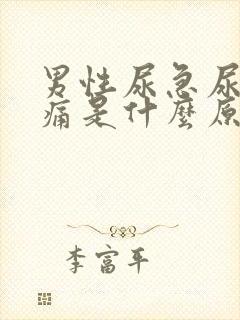 男性尿急尿
痛是什麼原
李富平